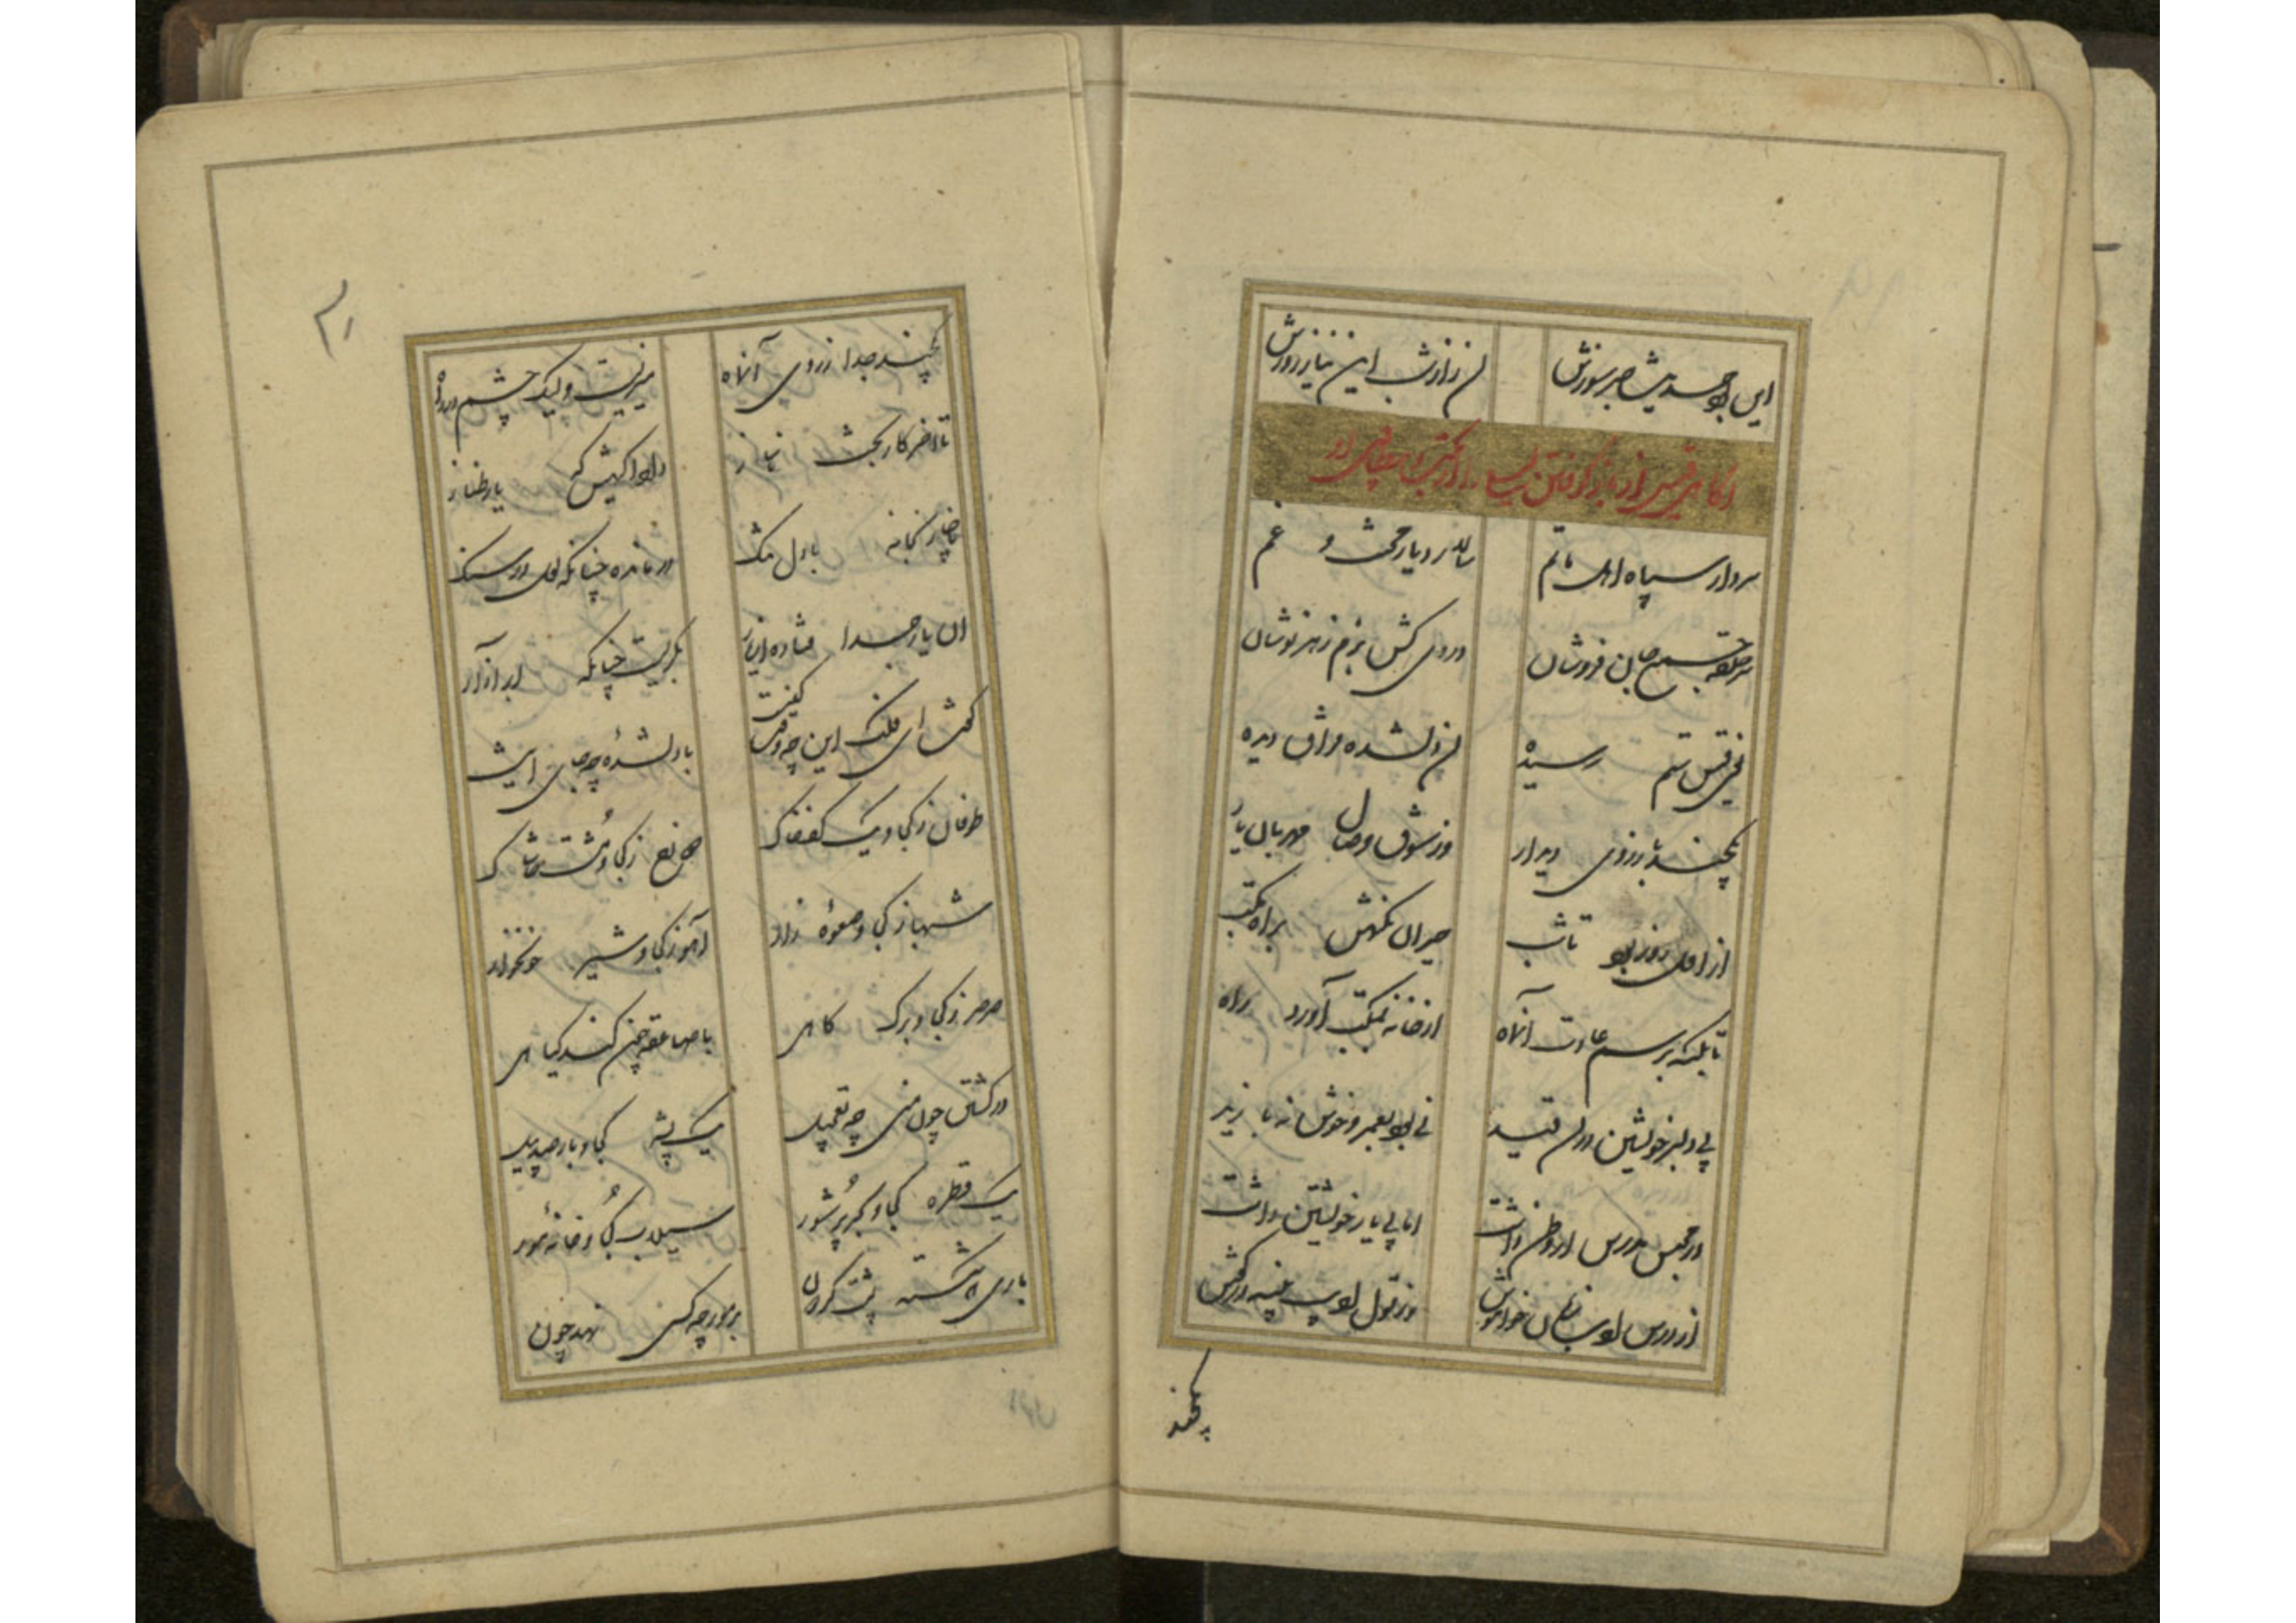 این بود حدیث صبر سوزش
آن راز شب این نیاز روزش
آگاهی قیس از باز گرفتن لیلی را از مکتب و بیطاقتی او
سردار سپاه اهل ماتم
سالار دیار محنت و غم
سرحلقه جمع جان فروشان
دردی کش بزم زهرنوشان
یعنی قیس ستم رسیده
آن دلشده فراق دیده
یکچند بآرزوی دیدار
وز شوق وصال مهربان یار
از اول روز بود تا شب
حیران نگهش براه مکتب
تا بلکه برسم عادت آن ماه
از خانه بمکتب آورد راه
بی دلبر خویشتن در آن قید
نی بود بعمرو خوش نه با زید
در مجلس درس ار وطن داشت
اما پی یار خویشتن داشت
از درس ادب زبان خاموش
وز قول ادیب پنبه در گوش
یکچند
یکچند جدا ز روی آن ماه
میزیست ولیک چشم در راه
تا آخر کار بخت ناساز
داد آگهیش که یار طناز
ناچار بخانه با دل تنگ
درمانده چنانکه لعل در سنگ
آن یار جدا فتاده از یار
بگریست چنانکه ابر آزار
گفت ای فلک این چه وقت کینست
با دلشده چه جای اینست
طوفان ز کجا و یک کف خاک
ز کجا و مشت خاشاک
شهباز کجا و صعوه زار
آهو ز کجا و شیر خونخوار
صرصر ز کجا و برگ کاهی
با صاعقه چون کند گیاهی
در کشتن چون منی چه تعجیل
یک پشه کجا و بار صد پیل
یک قطره کجا و بحر پرشور
سیلاب کجا و خانه مور
باری که شکسته پشت گردون
بر مورچه کسی نهد چون